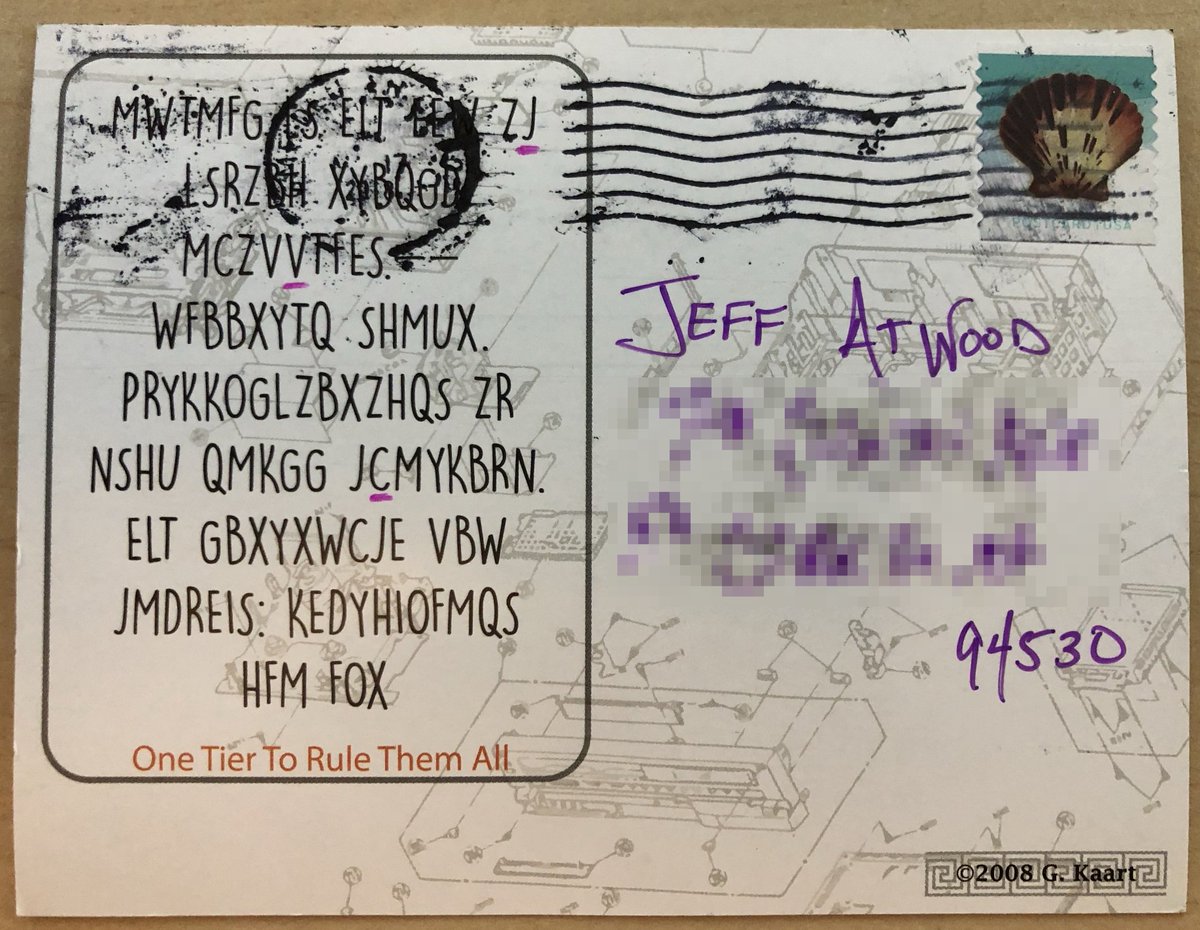 MWTMFG ELT ZJ
LSRZBH XYBQOD
MCZVVTFES.
WFBBXYTQ SHMUX.
PRYKKOGLZBXZHQS ZR
NSHU QMKGG JCMYKBRN.
ELT GBXYXWCJE VBW
JMDREIS: KEDYHIOFMQS
HFM FOX
One Tier To Rule Them All
POSTCARD USA
JEFF ATWOOD
94530
©2008 G. Kaart